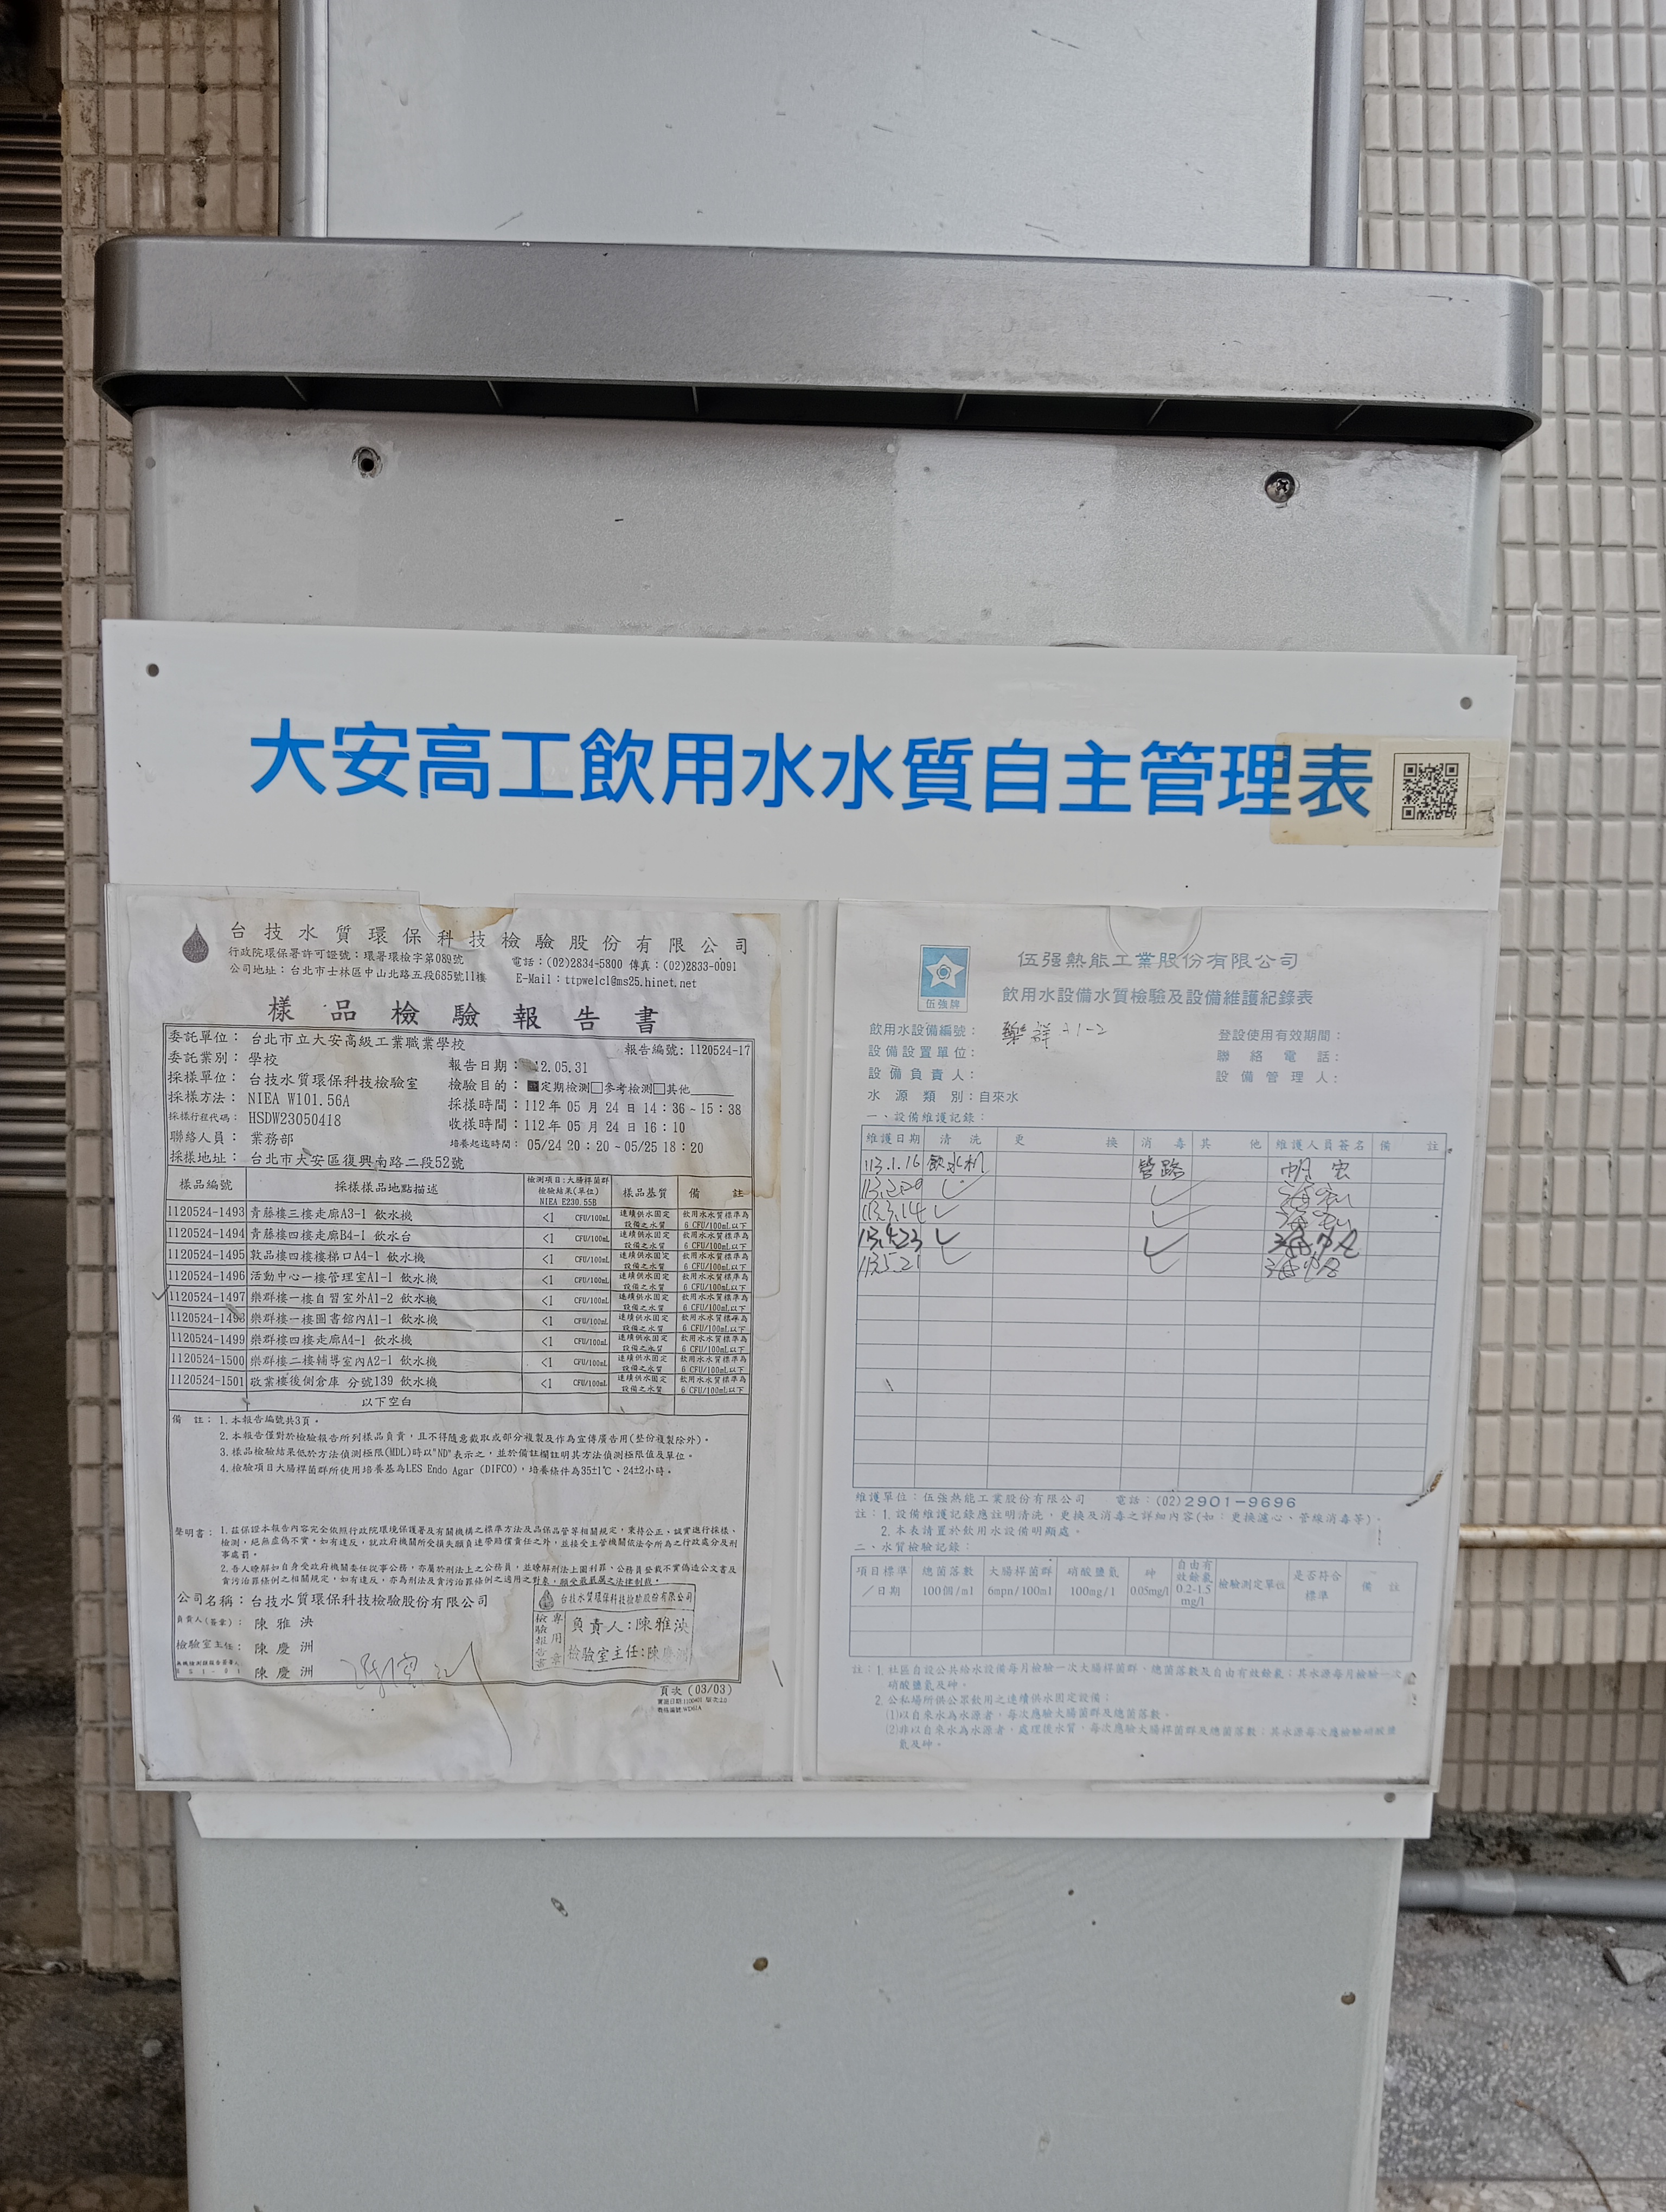 大安高工飲用水水質自主管理表
台技水質環保科技檢驗股份有限公司
行政院環保署許可證號：環署環檢字第089號
電話：(02)2834-5800 傳真：(02)2833-0091
公司地址：台北市士林區中山北路五段685號11樓
E-Mail：ttpwelcl@ms25.hinet.net
樣品檢驗報告書
委託單位： 台北市立大安高級工業職業學校
報告編號：1120524-17
委託業別： 學校
報告日期： 12.05.31
採樣單位： 台技水質環保科技檢驗室
檢驗目的：■定期檢測□參考檢測□其他
採樣方法： NIEA W101.56A
採樣時間：112年 05 月 24 日 14：36~15：38
採樣行程代碼： HSDW23050418
收樣時間：112年 05 月 24 日 16：10
聯絡人員： 業務部
培養起迄時間： 05/24 20：20~05/25 18：20
採樣地址： 台北市大安區復興南路二段52號
樣品編號 採樣樣品地點描述 檢測項目:大腸桿菌群 檢驗結果(單位) NIEA E230.55B 樣品基質 備 註
1120524-1493 青藤樓三樓走廊A3-1 飲水機 <1 CFU/100mL 連續供水固定設備之水質 飲用水水質標準為6 CFU/100mL以下
1120524-1494 青藤樓四樓走廊B4-1 飲水台 <1 CFU/100mL 連續供水固定設備之水質 飲用水水質標準為6 CFU/100mL以下
1120524-1495 敦品樓四樓樓梯口A4-1 飲水機 <1 CFU/100mL 連續供水固定設備之水質 飲用水水質標準為6 CFU/100mL以下
1120524-1496 活動中心一樓管理室A1-1 飲水機 <1 CFU/100mL 連續供水固定設備之水質 飲用水水質標準為6 CFU/100mL以下
1120524-1497 樂群樓一樓自習室外A1-2 飲水機 <1 CFU/100mL 連續供水固定設備之水質 飲用水水質標準為6 CFU/100mL以下
1120524-1498 樂群樓一樓圖書館內A1-1 飲水機 <1 CFU/100mL 連續供水固定設備之水質 飲用水水質標準為6 CFU/100mL以下
1120524-1499 樂群樓四樓走廊A4-1 飲水機 <1 CFU/100mL 連續供水固定設備之水質 飲用水水質標準為6 CFU/100mL以下
1120524-1500 樂群樓二樓輔導室內A2-1 飲水機 <1 CFU/100mL 連續供水固定設備之水質 飲用水水質標準為6 CFU/100mL以下
1120524-1501 敬業樓後側倉庫 分號139 飲水機 <1 CFU/100mL 連續供水固定設備之水質 飲用水水質標準為6 CFU/100mL以下
以下空白
備 註：1.本報告編號共3頁。
2.本報告僅對於檢驗報告所列樣品負責，且不得隨意截取或部分複製及作為宣傳廣告用(整份複製除外)。
3.樣品檢驗結果低於方法偵測極限(MDL)時以"ND"表示之，並於備註欄註明其方法偵測極限值及單位。
4.檢驗項目大腸桿菌群所使用培養基為LES Endo Agar (DIFCO)，培養條件為35±1℃、24±2小時。
聲明書：1.茲保證本報告內容完全依照行政院環境保護署及有關機構之標準方法及品保品管等相關規定，秉持公正、誠實進行採樣、
檢測，絕無虛偽不實，如有違反，就政府機關所受損失願負連帶賠償責任之外，並接受主管機關依法令所為之行政處分及刑
事處罰。
2.吾人瞭解如自身受政府機關委任從事公務，亦屬於刑法上之公務員，並瞭解刑法上圖利罪、公務員登載不實偽造公文書及
貪污治罪條例之相關規定，如有違反，亦為刑法及貪污治罪條例之適用之對象，願受最嚴厲之法律制裁。
公司名稱：台技水質環保科技檢驗股份有限公司
負責人(簽章)： 陳雅泱
檢驗室主任： 陳慶洲
陳慶洲
台技水質環保科技檢驗股份有限公司
檢驗報告書專用章
負責人:陳雅泱
檢驗室主任:陳慶洲
頁次 (03/03)
伍強牌
伍强熱能工業股份有限公司
飲用水設備水質檢驗及設備維護紀錄表
飲用水設備編號： 樂群 A1-2
登設使用有效期間：
設備設置單位：
聯絡電話：
設備負責人：
設備管理人：
水源類別：自來水
一、設備維護記錄：
維護日期 清 洗 更 換 消 毒 其 他 維護人員簽名 備 註
113.1.16 飲水机 管路
113.2.29 ✓ ✓
113.3.14 ✓ ✓
113.4.23 ✓ ✓
113.5.21 ✓ ✓
維護單位：伍強熱能工業股份有限公司 電話：(02)2901-9696
註：1.設備維護記錄應註明清洗，更換及消毒之詳細內容(如：更換濾心、管線消毒等)。
2.本表請置於飲用水設備明顯處。
二、水質檢驗記錄：
項目標準／日期 總菌落數 100個/ml 大腸桿菌群 6mpn/100ml 硝酸鹽氮 100mg/l 砷 0.05mg/l 自由有效餘氯 0.2-1.5 mg/l 檢驗測定單位 是否符合標準 備 註
註：1.社區自設公共給水設備每月檢驗一次大腸桿菌群、總菌落數及自由有效餘氯；其水源每月檢驗一次
硝酸鹽氮及砷。
2.公私場所供公眾飲用之連續供水固定設備：
(1)以自來水為水源者，每次應驗大腸桿菌群及總菌落數。
(2)非以自來水為水源者，處理後水質，每次應驗大腸桿菌群及總菌落數；其水源每次應檢驗硝酸鹽
氮及砷。